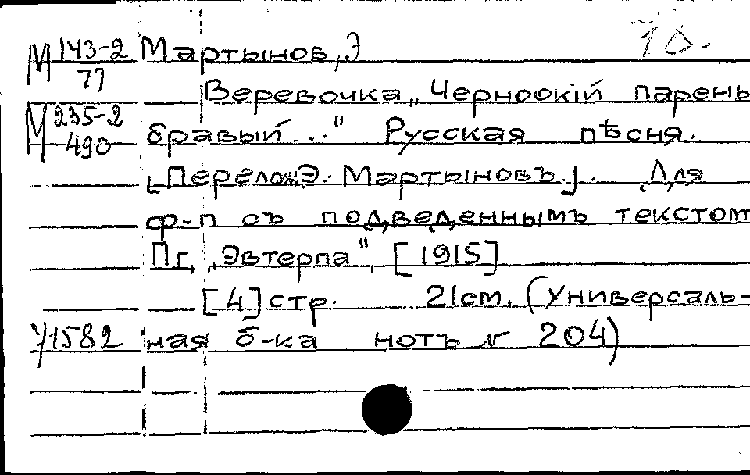 М 143-2/77 Мартынов, Э 10.
Веревочка „Черноокій парень
М 235-2/490 бравый..." Русская пѣсня.
[Перелож. Э. Мартыновъ]. Для
ф-п съ подведеннымъ текстом
Пг, „Эвтерпа", [1915]
[4] стр. 21см. (Универсаль-
71582 ная б-ка нотъ № 204)